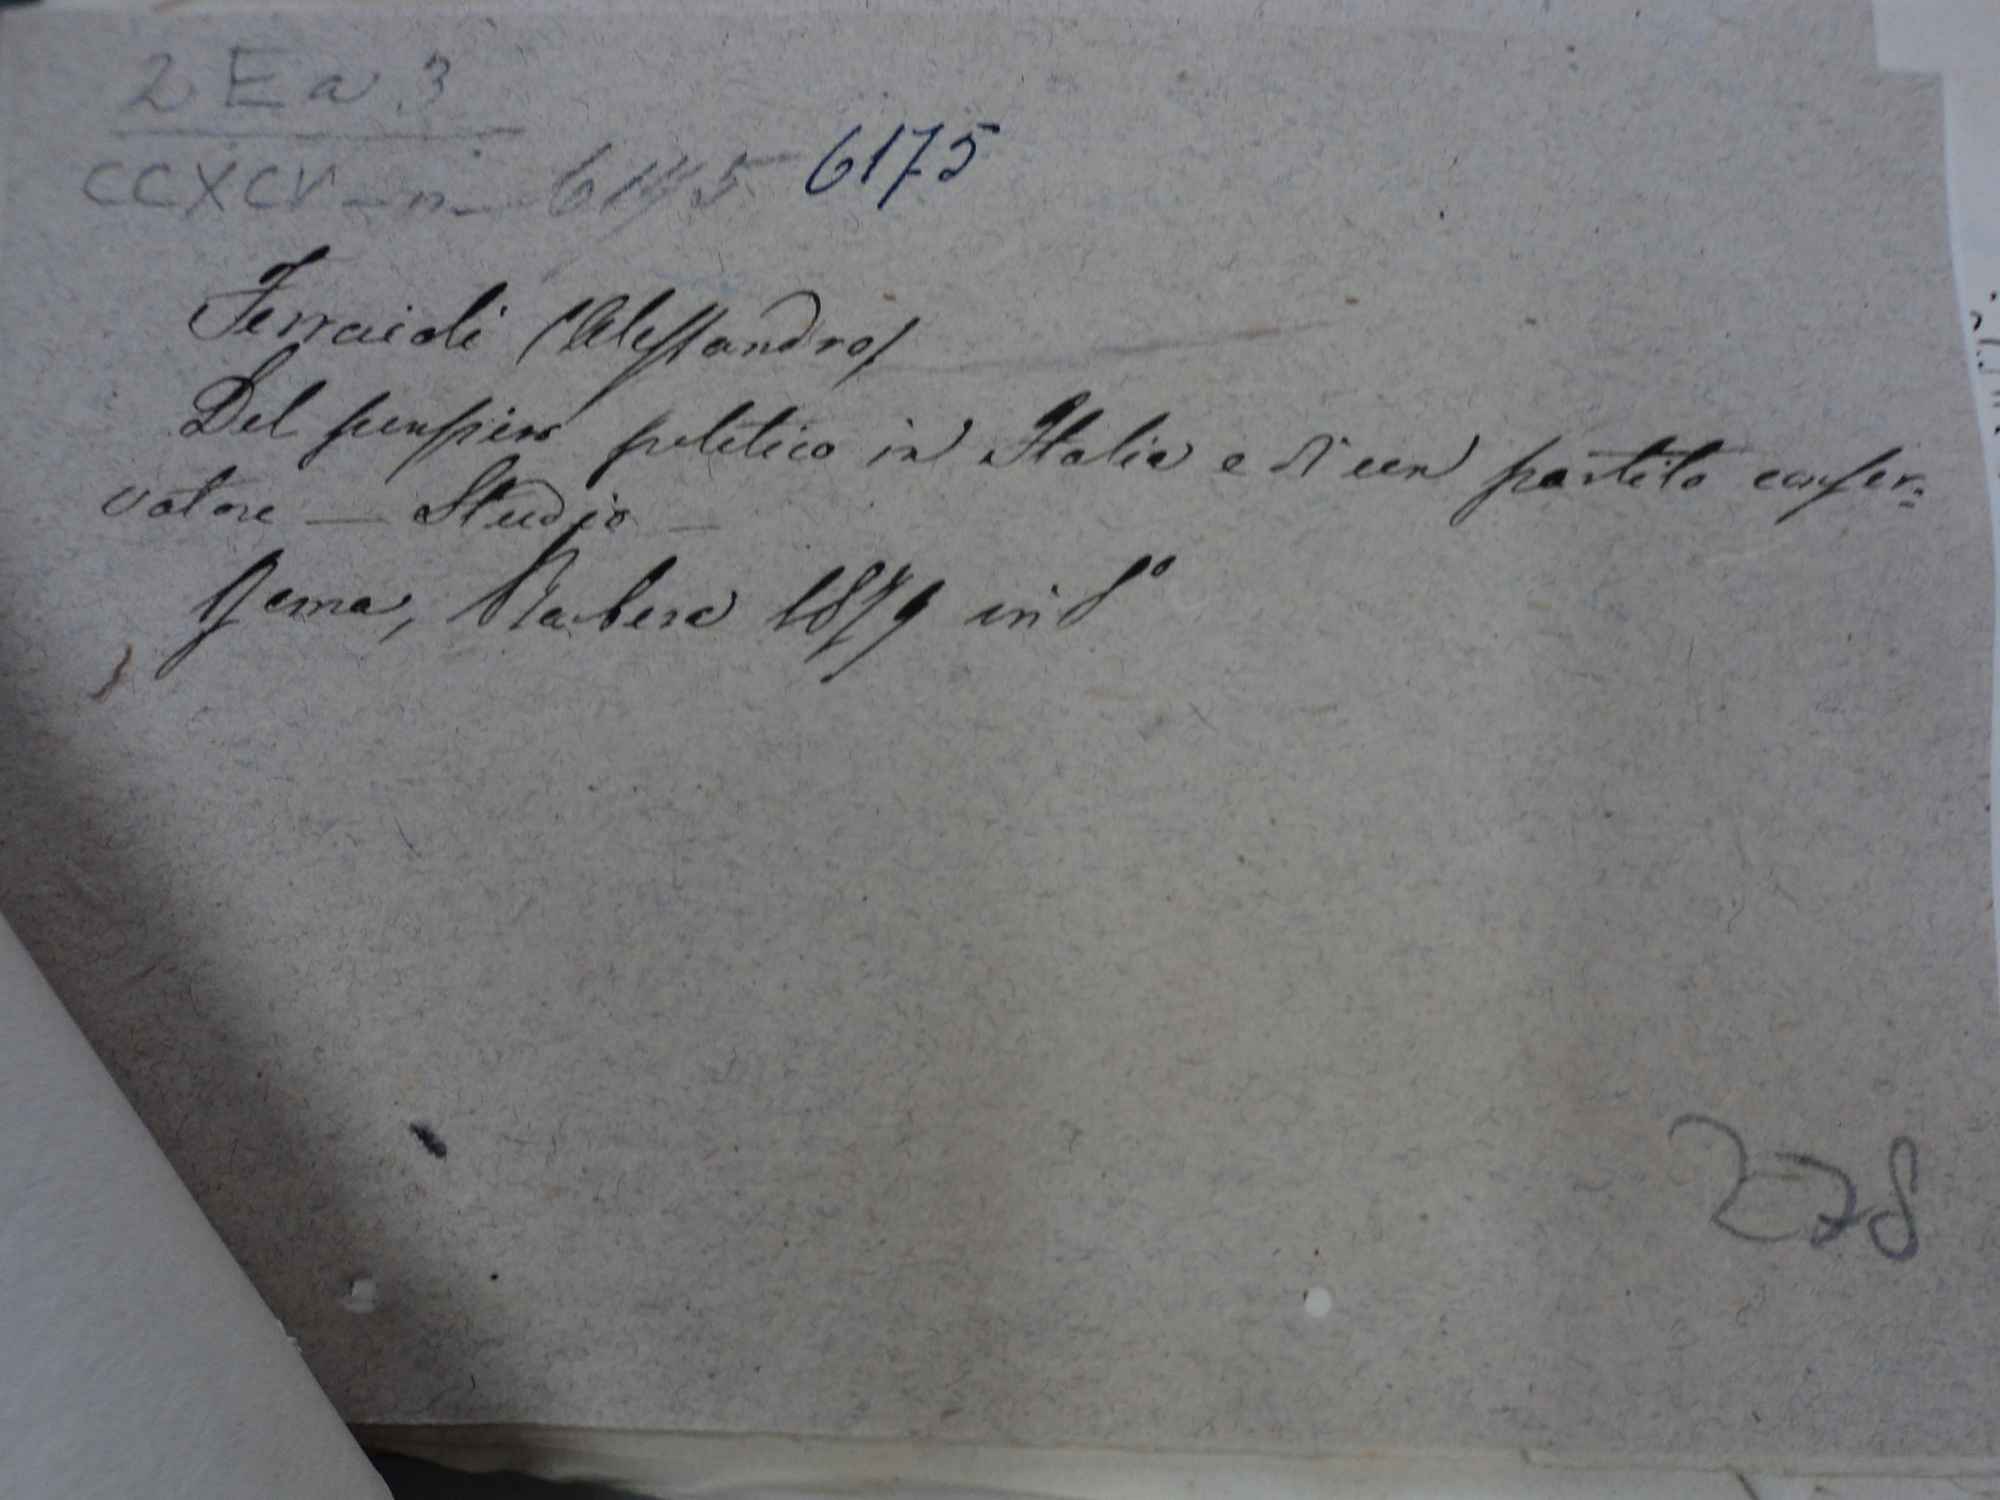 2 E a 3
CCXCV - n - 6175 6175
Ferraioli (Alessandro)
Del pensiero politico in Italia e di un partito conser=
vatore — Studio —
Roma, Barbera 1879 in 8°
278